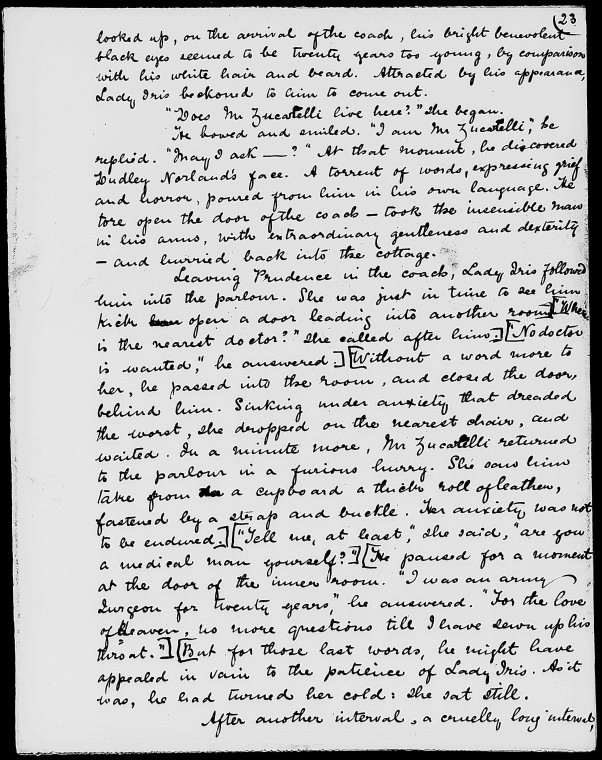 (23
looked up, on the arrival of the coach, his bright benevolent
black eyes seemed to be twenty years too young, by comparison
with his white hair and beard. Attracted by his appearance,
Lady Iris beckoned to him to come out.
"Does Mr Zucatelli live here?" she began.
He bowed and smiled. "I am Mr Zucatelli," he
replied. "May I ask — ?" At that moment, he discovered
Dudley Norland's face. A torrent of words, expressing grief
and horror, poured from him in his own language. He
tore open the door of the coach – took the insensible man
in his arms, with extraordinary gentleness and dexterity
– and hurried back into the cottage.
Leaving Prudence in the coach, Lady Iris followed
him into the parlour. She was just in time to see him
kick open a door leading into another room.] ["Where
is the nearest doctor?" she called after him.] ["No doctor
is wanted," he answered.] [Without a word more to
her, he passed into the room, and closed the door,
behind him. Sinking under anxiety that dreaded
the worst, she dropped on the nearest chair, and
waited. In a minute more, Mr Zucatelli returned
to the parlour in a furious hurry. She saw him
take from a cupboard a thick roll of leather,
fastened by a strap and buckle. Her anxiety was not
to be endured.] ["Tell me, at least," she said, "are you
a medical man yourself?"] [He paused for a moment
at the door of the inner room. "I was an army
Surgeon for twenty years," he answered. "For the love
of Heaven, no more questions till I have sewn up his
throat."] [But for those last words, he might have
appealed in vain to the patience of Lady Iris. As it
was, he had turned her cold: she sat still.
After another interval, a cruelly long interval,